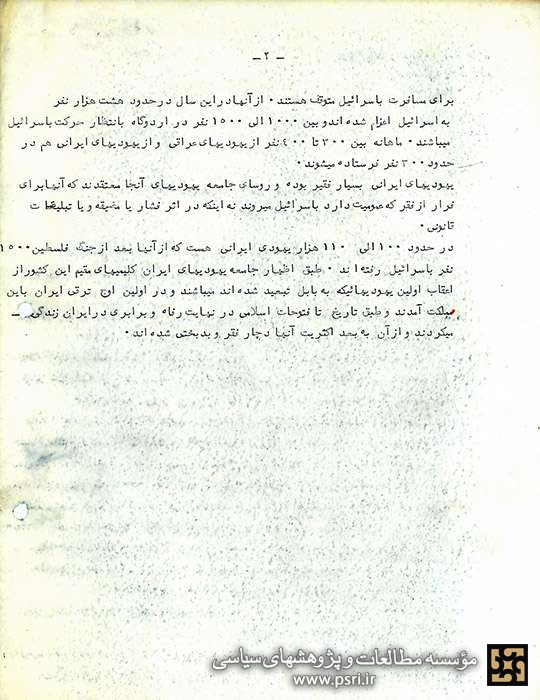 ــ ۲ ــ
برای مسافرت باسرائیل متوقف هستند . از آنها در این سال در حدود هشت هزار نفر
به اسرائیل اعزام شده اند و بین ۱۰۰۰ الی ۱۵۰۰ نفر در اردوگاه بانتظار حرکت باسرائیل
میباشند . ماهانه بین ۳۰۰ تا ۴۰۰ نفر از یهودیهای عراقی و از یهودیهای ایرانی هم در
حدود ۳۰۰ نفر فرستاده میشوند .
یهودیهای ایرانی بسیار فقیر بوده و روسای جامعه یهودیهای آنجا معتقدند که آنها برای
فرار از فقر که عمومیت دارد باسرائیل میروند نه اینکه در اثر فشار یا مضیقه و یا تبلیغات
قانونی .
در حدود ۱۰۰ الی ۱۱۰ هزار یهودی ایرانی هست که از آنها بعد از جنگ فلسطین ۱۵۰۰
نفر باسرائیل رفته اند . طبق اظهار جامعه یهودیهای ایران کلیمیهای مقیم این کشور از
اعقاب اولین یهودیهائیکه به بابل تبعید شده اند میباشند و در اولین اوج ترقی ایران باین
مملکت آمدند و طبق تاریخ تا فتوحات اسلامی در نهایت رفاه و برابری در ایران زندگی ــ
میکردند و از آن به بعد اکثریت آنها دچار فقر و بدبختی شده اند .
مؤسسه مطالعات و پژوهشهای سیاسی
www.psri.ir